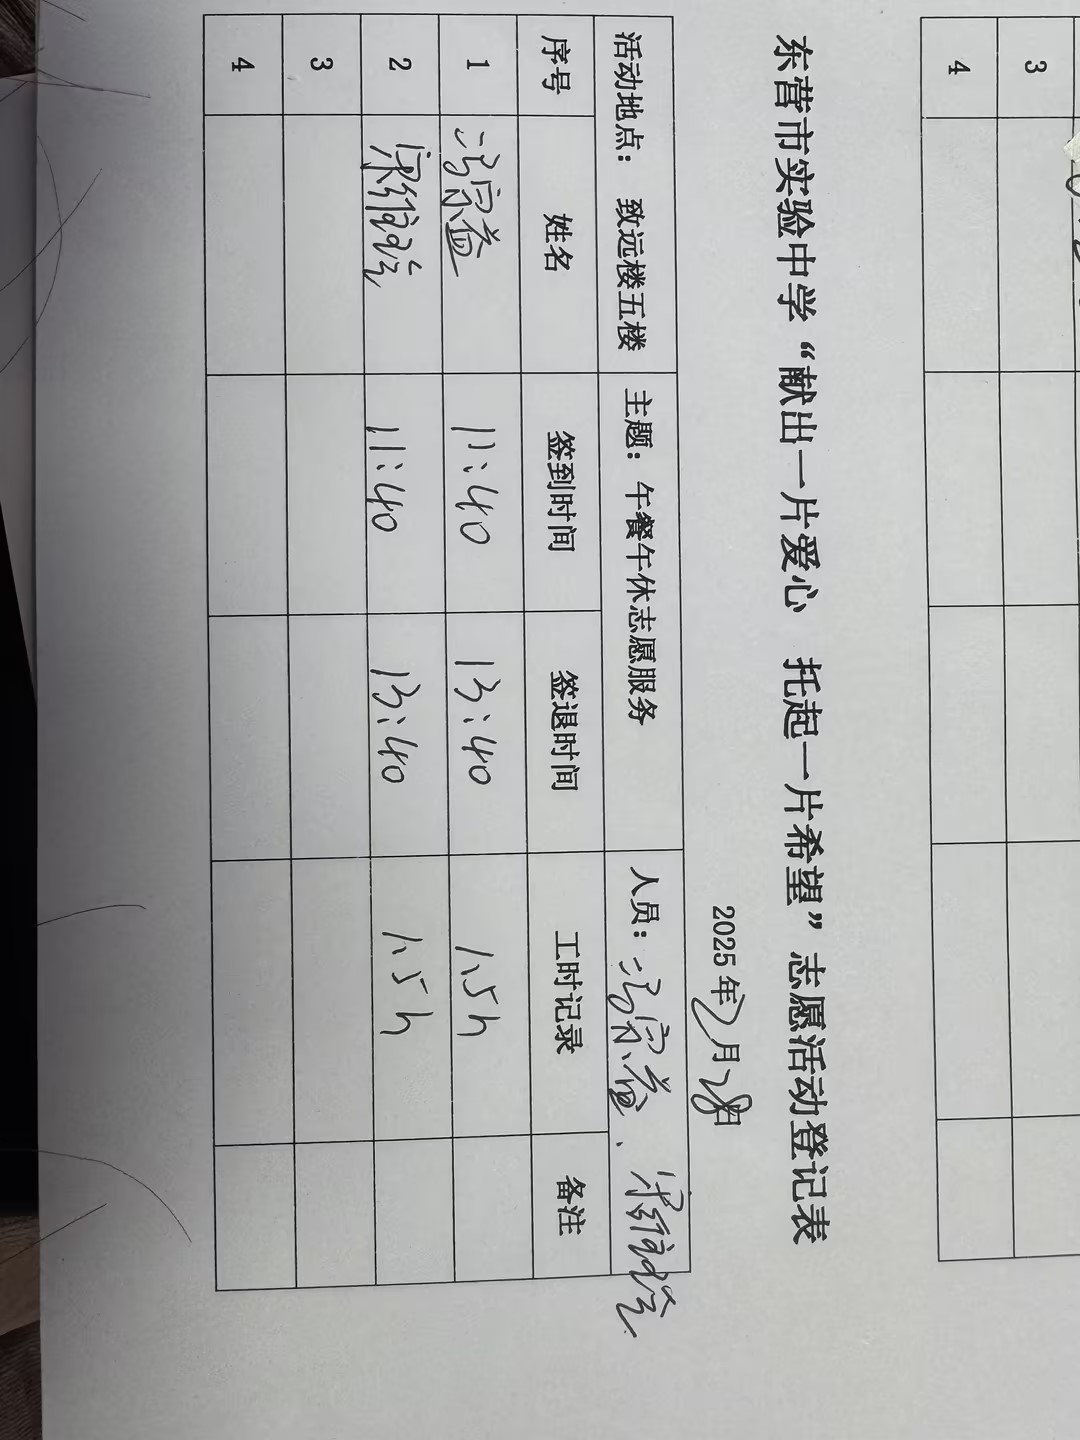 3
4
东营市实验中学“献出一片爱心 托起一片希望”志愿活动登记表
2025年 月28日
活动地点： 致远楼五楼 主题：午餐午休志愿服务 人员：冯宗益、
序号 姓名 签到时间 签退时间 工时记录 备注
1 冯宗益 11:40 13:40 1.5h
2 11:40 13:40 1.5h
3
4